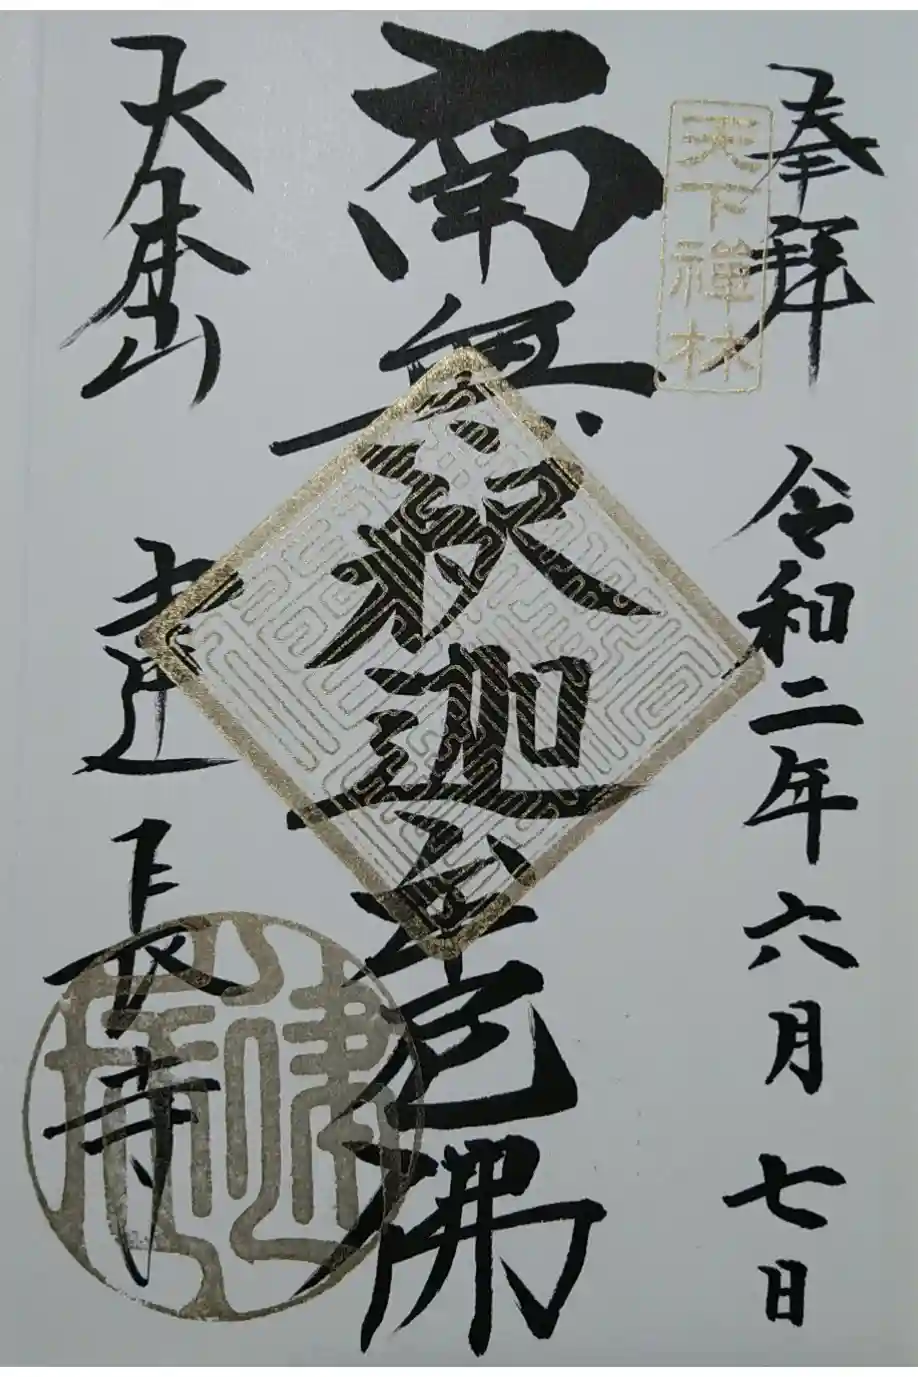 奉拝 令和二年六月七日
天下禅林
南無釈迦牟尼佛
大本山 建長寺
建長